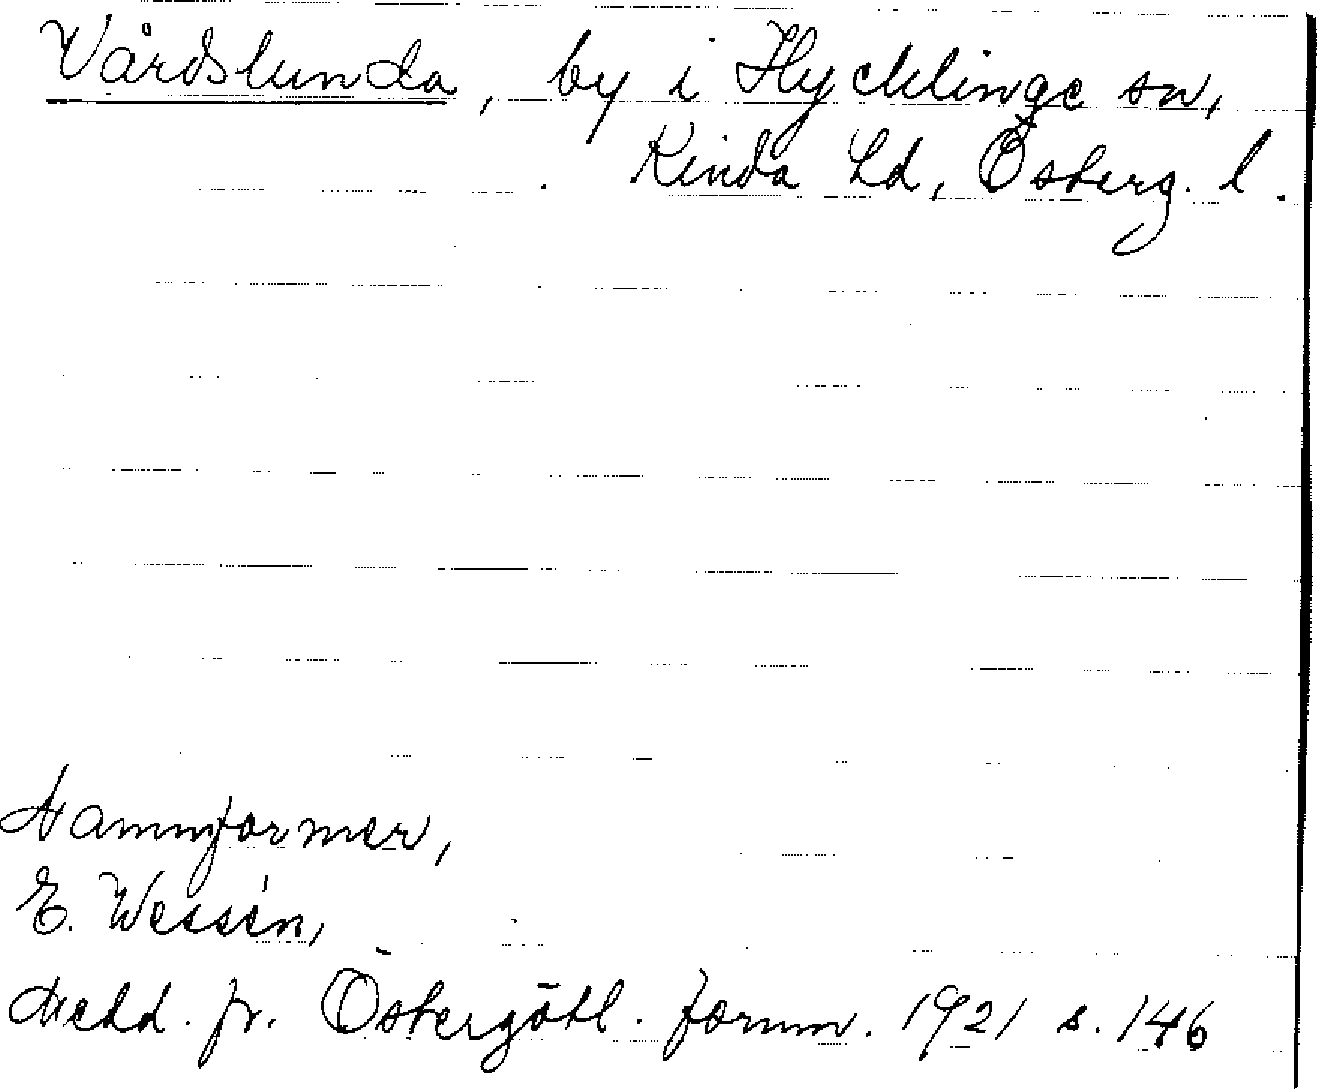 Vårdslunda, by i Hycklinge sn,
Kinda hd, Österg. l.
Namnformer,
E. Wessén,
Medd. fr. Östergötl. fornm. 1921 s. 146